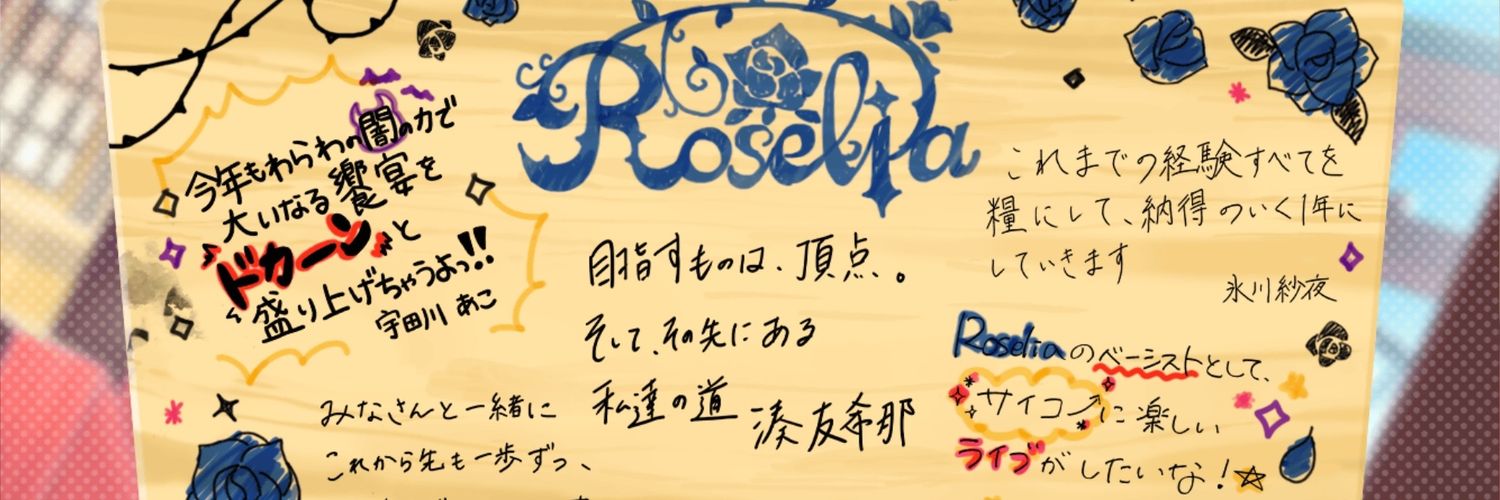 Roselia
今年もわらわの闇の力で
大いなる饗宴を
ドカーンと
盛り上げちゃうよっ!!
宇田川 あこ
目指すものは、頂点。
そして、その先にある
私達の道
湊友希那
これまでの経験すべてを
糧にして、納得のいく1年に
していきます
氷川紗夜
Roseliaのベーシストとして、
サイコーに楽しい
ライブがしたいな!☆
みなさんと一緒に
これから先も一歩ずつ、